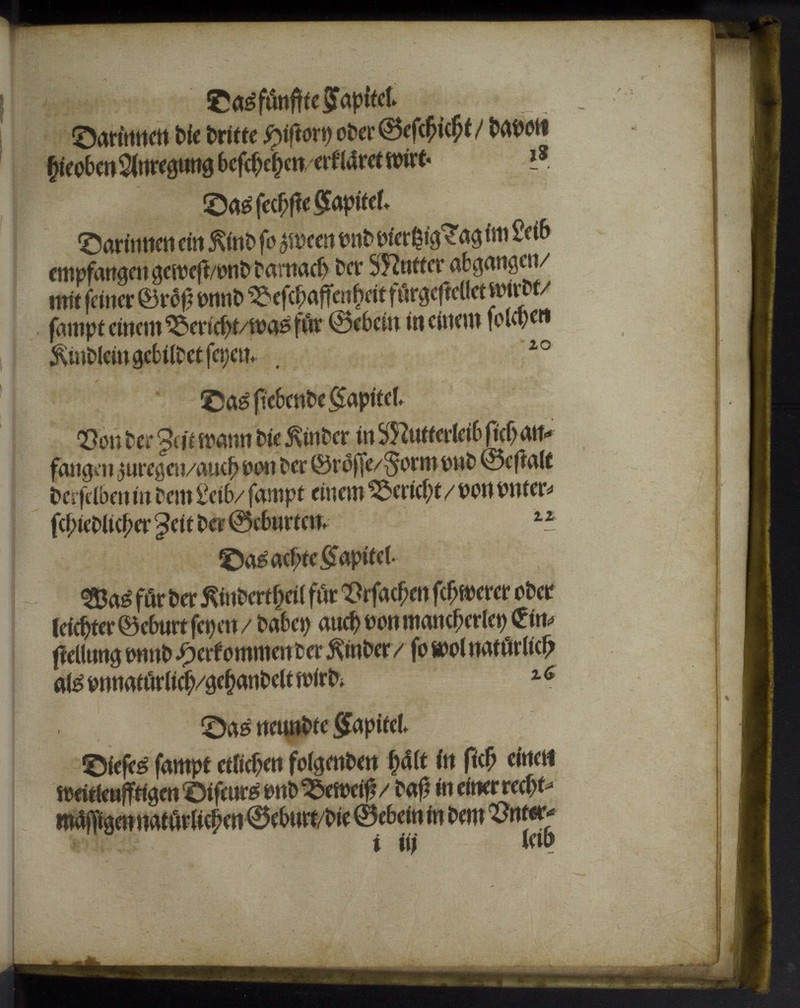 Das fünffte Capitel.
Darinnen die dritte History oder Geschicht / davon
hieoben Anregung beschehen / erkläret wirt. 18
Das sechste Capitel.
Darinnen ein Kind so zween vnd viertzig Tag im Leib
empfangen gewest / vnd darnach der Mutter abgangen /
mit seiner Größ vnnd Beschaffenheit fürgestellet wirdt /
sampt einem Bericht / was für Gebein in einem solchen
Kindlein gebildet seyen. 20
Das siebende Capitel.
Von der Zeit wann die Kinder in Mutterleib sich an-
fangen zuregen / auch von der Grösse / Form vnd Gestalt
derselben in dem Leib / sampt einem Bericht / von vnter-
schiedlicher Zeit der Geburten. 22
Das achte Capitel.
Was für der Kindertheil für Vrsachen schwerer oder
leichter Geburt seyen / dabey auch von mancherley Ein-
stellung vnnd Herkommen der Kinder / so wol natürlich
als vnnatürlich / gehandelt wird. 26
Das neundte Capitel.
Dieses sampt etlichen folgenden hält in sich einen
weitleufftigen Discurs vnd Beweiß / daß in einer recht-
mässigen natürlichen Geburt / die Gebein in dem Vnter-
i iij leib